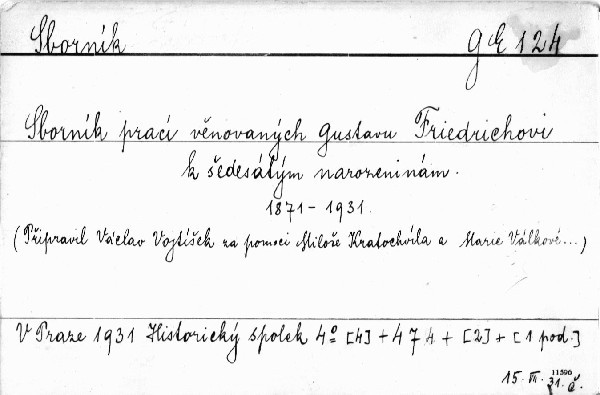 Sborník gE 124
Sborník prací věnovaných Gustavu Friedrichovi
k šedesátým narozeninám.
1871-1931.
(Připravil Václav Vojtíšek za pomoci Miloše Kratochvíla a Marie Válkové...)
V Praze 1931 Historický spolek 4º [4] + 474 + [2] + [1 pod.]
11590
15. VI. 31. Č.